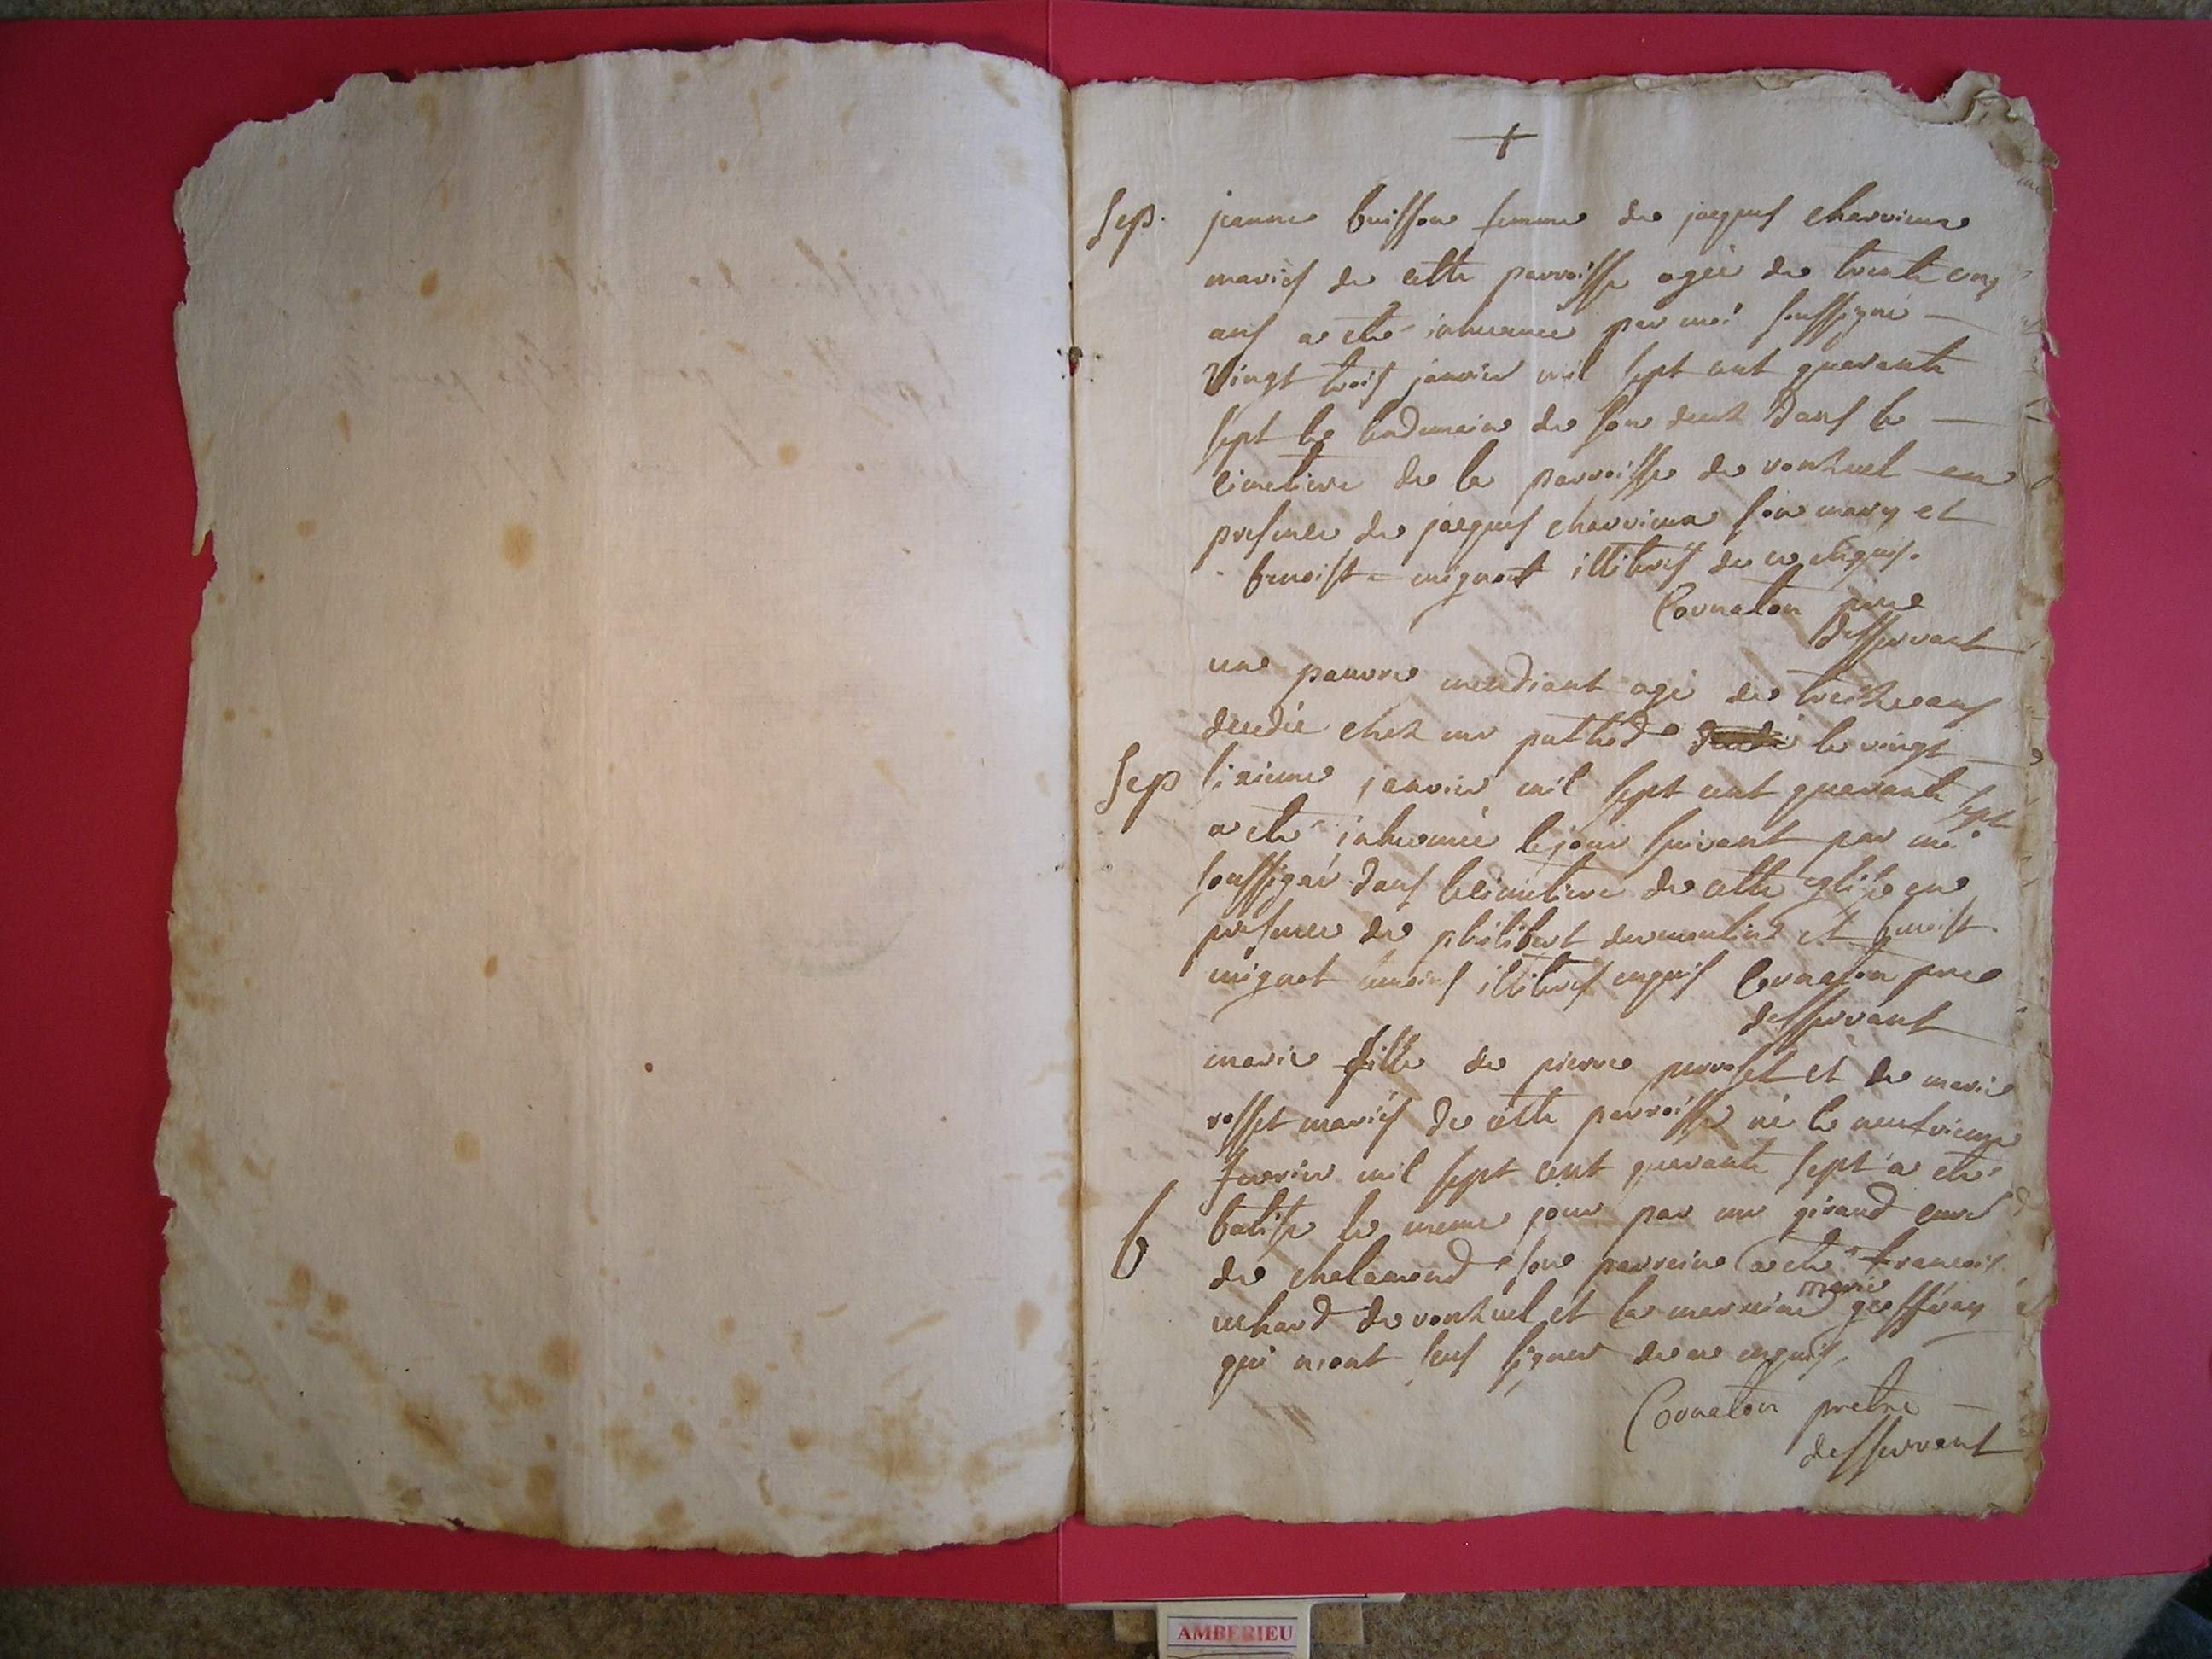 +
Sep. jeanne buisson femme de jacques charvieux
mariés de cette parroisse agée de trente cinq
ans a été inhumée par moi soussigné
Vingt trois janvier mil sept cent quarante
sept le lendemain de son decez dans le
cimetiere de la parroisse de ronzuel en
presence de jacques charvieux son mary et
benoist mignot illiterés de ce enquis.
Cornaton ptre
desservant
un pauvre mendiant agé de treize ans
decedé chez mr le vingt
Sep sixieme janvier mil sept cent quarante sept
a été inhumé le jour suivant par moi
soussigné dans le cimetiere de cette eglise en
presence de philibert dumoulin et benoist
mignot illiterés enquis Cornaton ptre
desservant
marie fille de pierre perroset et de marie
rosset mariés de cette parroisse né le neufvieme
fevrier mil sept cent quarante sept a été
b batisé le meme jour par mr giraud curé
de chalamond son parrein a été francois
de ronzuel et la marreine marie geoffray
qui n'ont seu signer de ce enquis.
Cornaton pretre
desservant
AMBERIEU